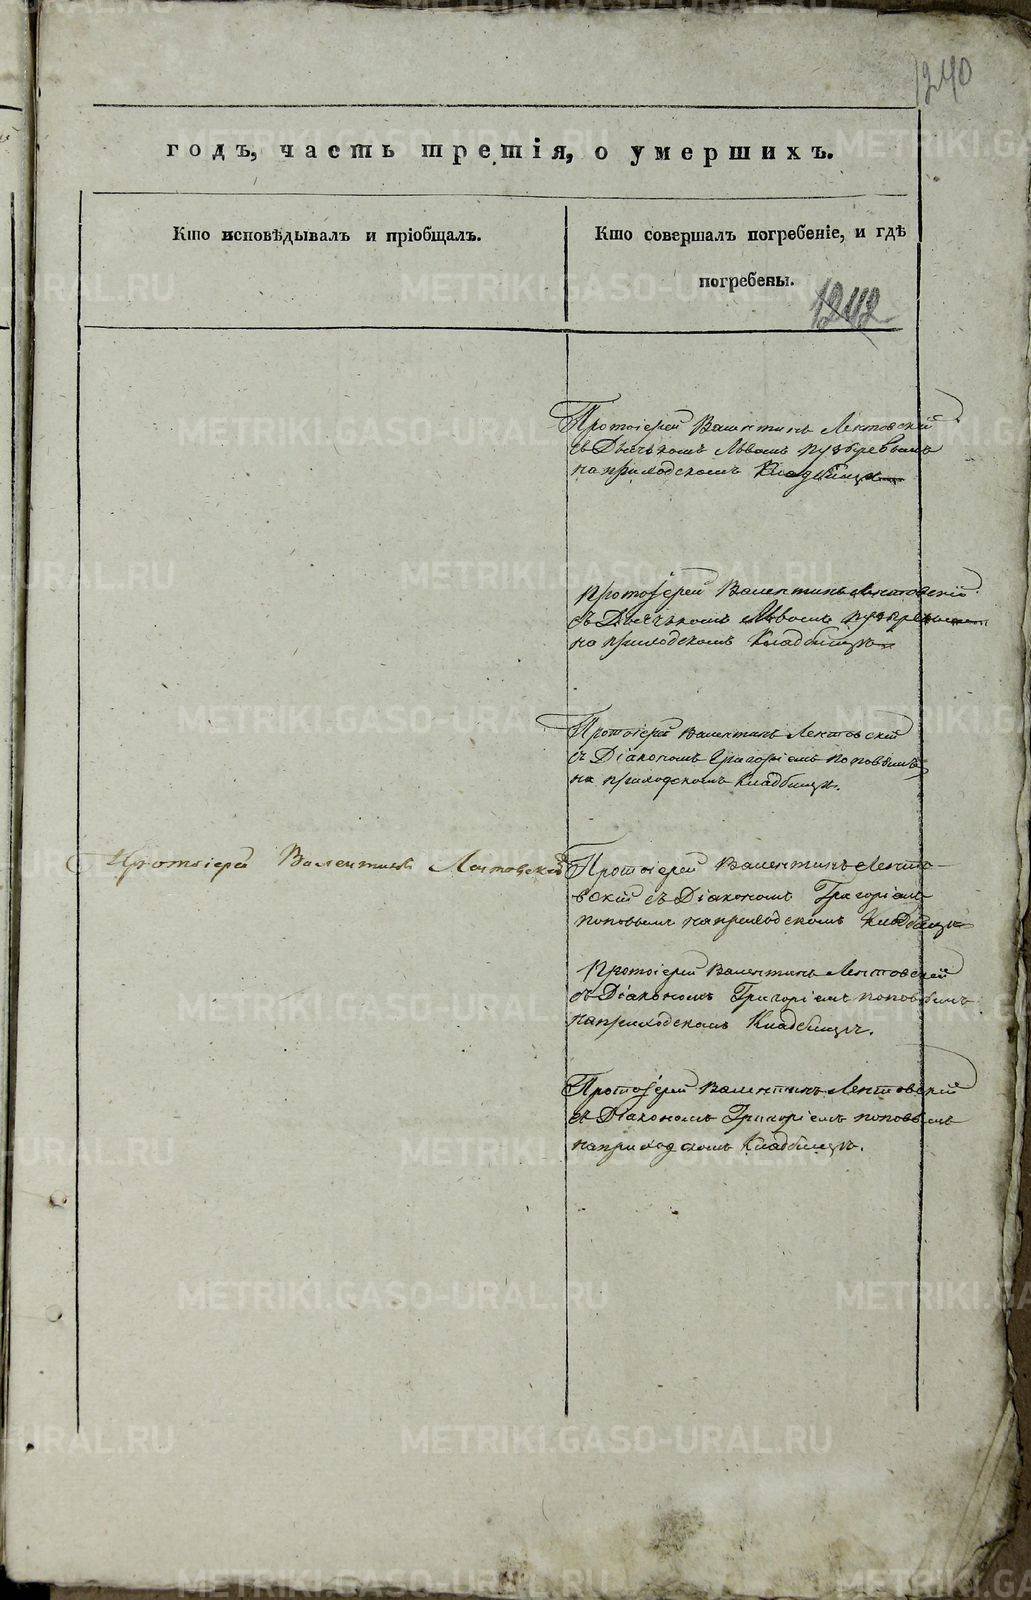 1240
годъ, часть третія, о умершихъ.
Кто исповѣдывалъ и пріобщалъ.
Кто совершалъ погребеніе, и гдѣ
погребены.
1242
Протоіерей Валентинъ Лентовскій
съ Дьячкомъ Львомъ
на приходскомъ Кладбищѣ
Протоіерей Валентинъ Лентовскій
съ Дьячкомъ Львомъ
на приходскомъ Кладбищѣ
Протоіерей Валентинъ Лентовскій
съ Діакономъ Григоріемъ Поповымъ
на приходскомъ Кладбищѣ.
Протоіерей Валентинъ Лентовскій
Протоіерей Валентинъ Лентов-
вскій съ Діакономъ Григоріемъ
Поповымъ на приходскомъ Кладбищѣ
Протоіерей Валентинъ Лентовскій
съ Діакономъ Григоріемъ Поповымъ
на приходскомъ Кладбищѣ.
Протоіерей Валентинъ Лентовскій
съ Діакономъ Григоріемъ Поповымъ
на приходскомъ Кладбищѣ.
METRIKI.GASO-URAL.RU